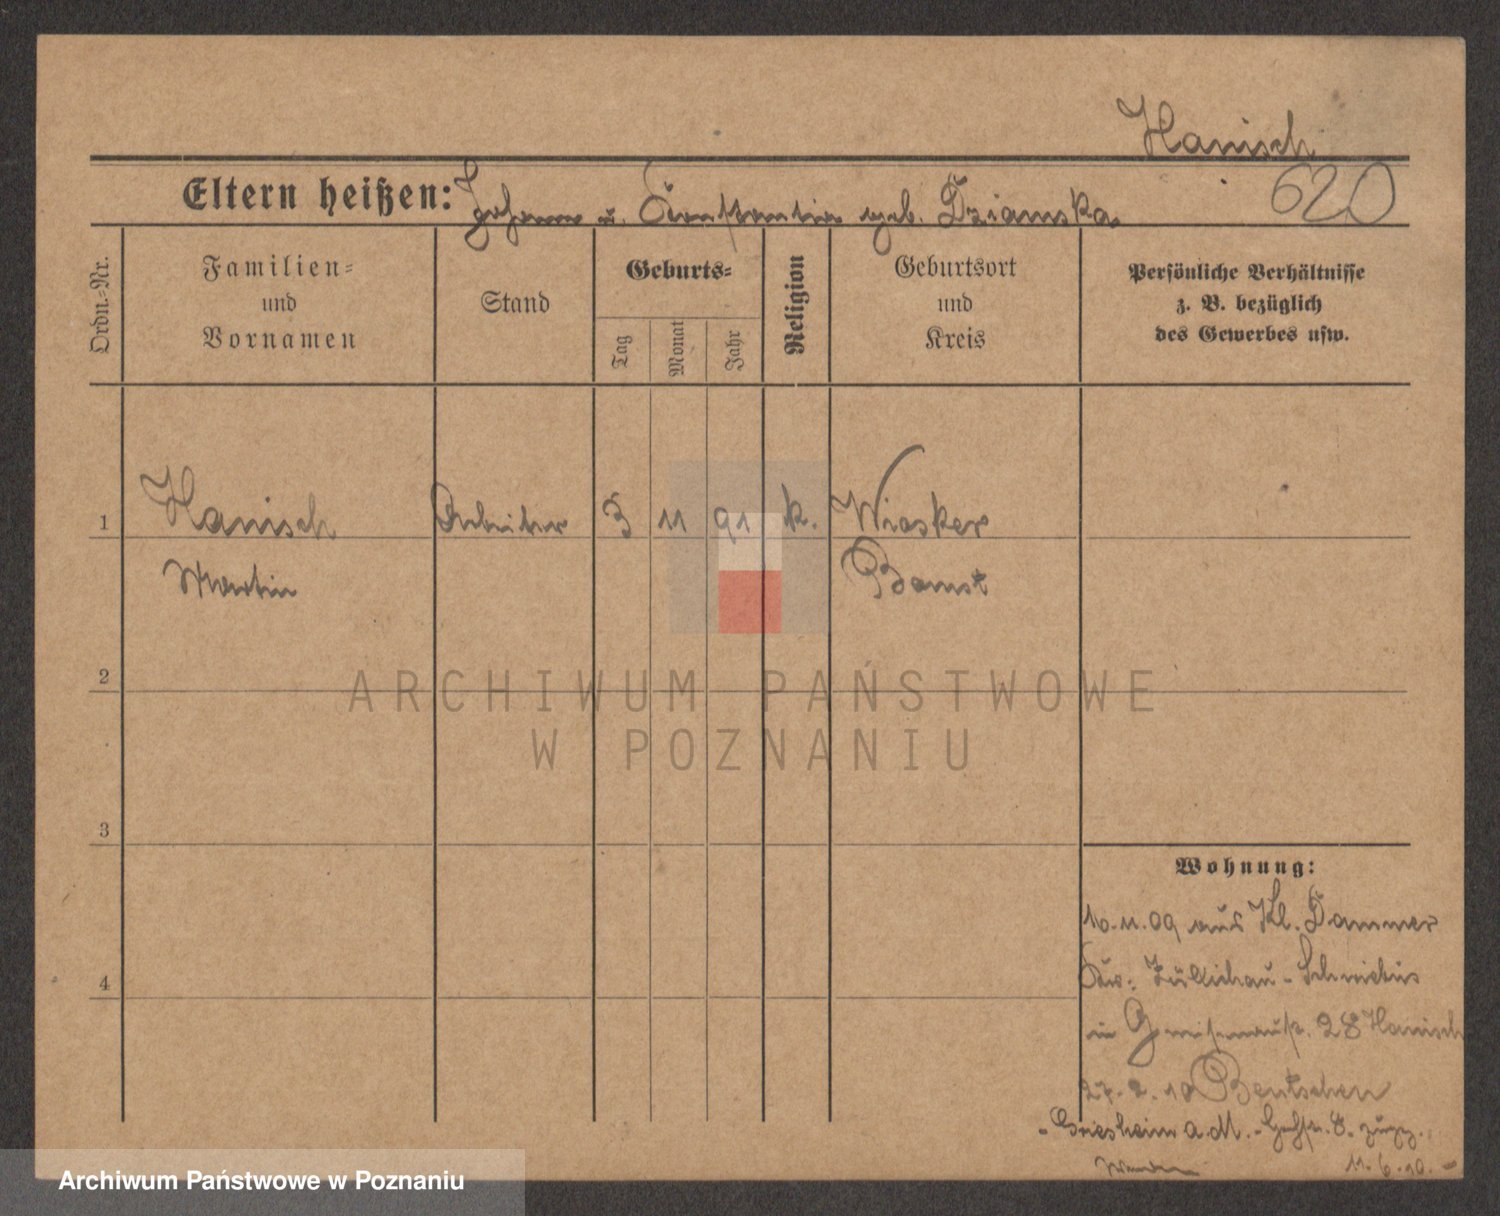 Hanisch
Eltern heißen: Johann u. Konstantia geb. Dziamska
620
Ordn.=Nr.
Familien=
und
Vornamen
Stand
Geburts=
Tag
Monat
Jahr
Religion
Geburtsort
und
Kreis
Persönliche Verhältnisse
z. B. bezüglich
des Gewerbes usw.
1 Hanisch Arbeiter 3 11 91 k. Wiosker
Martin Bomst
2
ARCHIWUM PAŃSTWOWE
W POZNANIU
3
Wohnung:
10.11.09 aus Kl. Dammer
Kr: Züllichau - Schwiebus
in Gneisenaustr. 28 Hanisch
4
27.2.10 Bentschen
- Griesheim a.M. - 8. zugz.
11.6.10. -
Archiwum Państwowe w Poznaniu